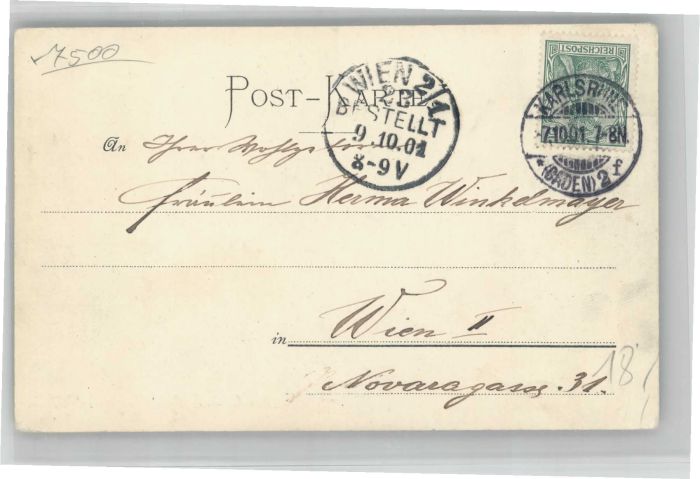 17500
POST-KARTE
REICHSPOST
WIEN 2/1
BESTELLT
9.10.01
8-9V
KARLSRUHE
7.10.01 7-8N
*(BADEN) 2f
An Ihrer Wohlgeboren
Fräulein Herma Winkelmayer
in Wien II
Novaragasse 31.
18/